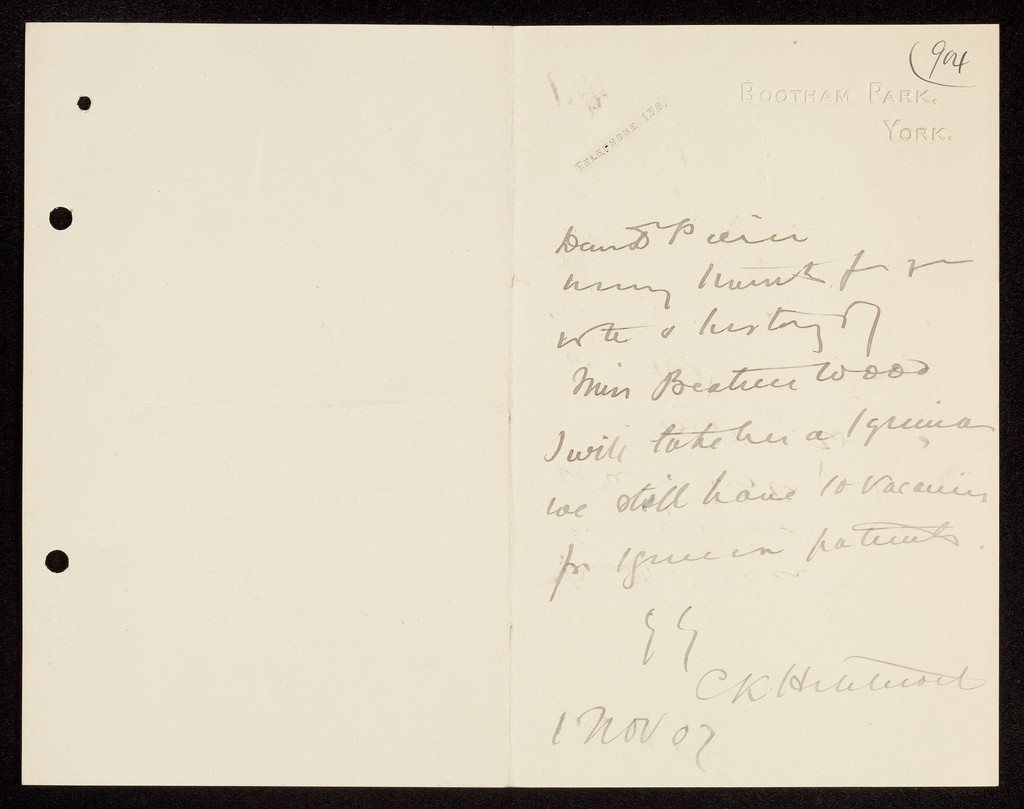 (904
BOOTHAM PARK,
YORK.
TELEPHONE 130.
Dear Dr Pierce
many thanks for yr
note & history of
Miss Beatrice Wood
I will take her a 1 guinea
we still have 10 vacancies
for 1 guinea patients.
CK Hitchcock
1 Nov 07